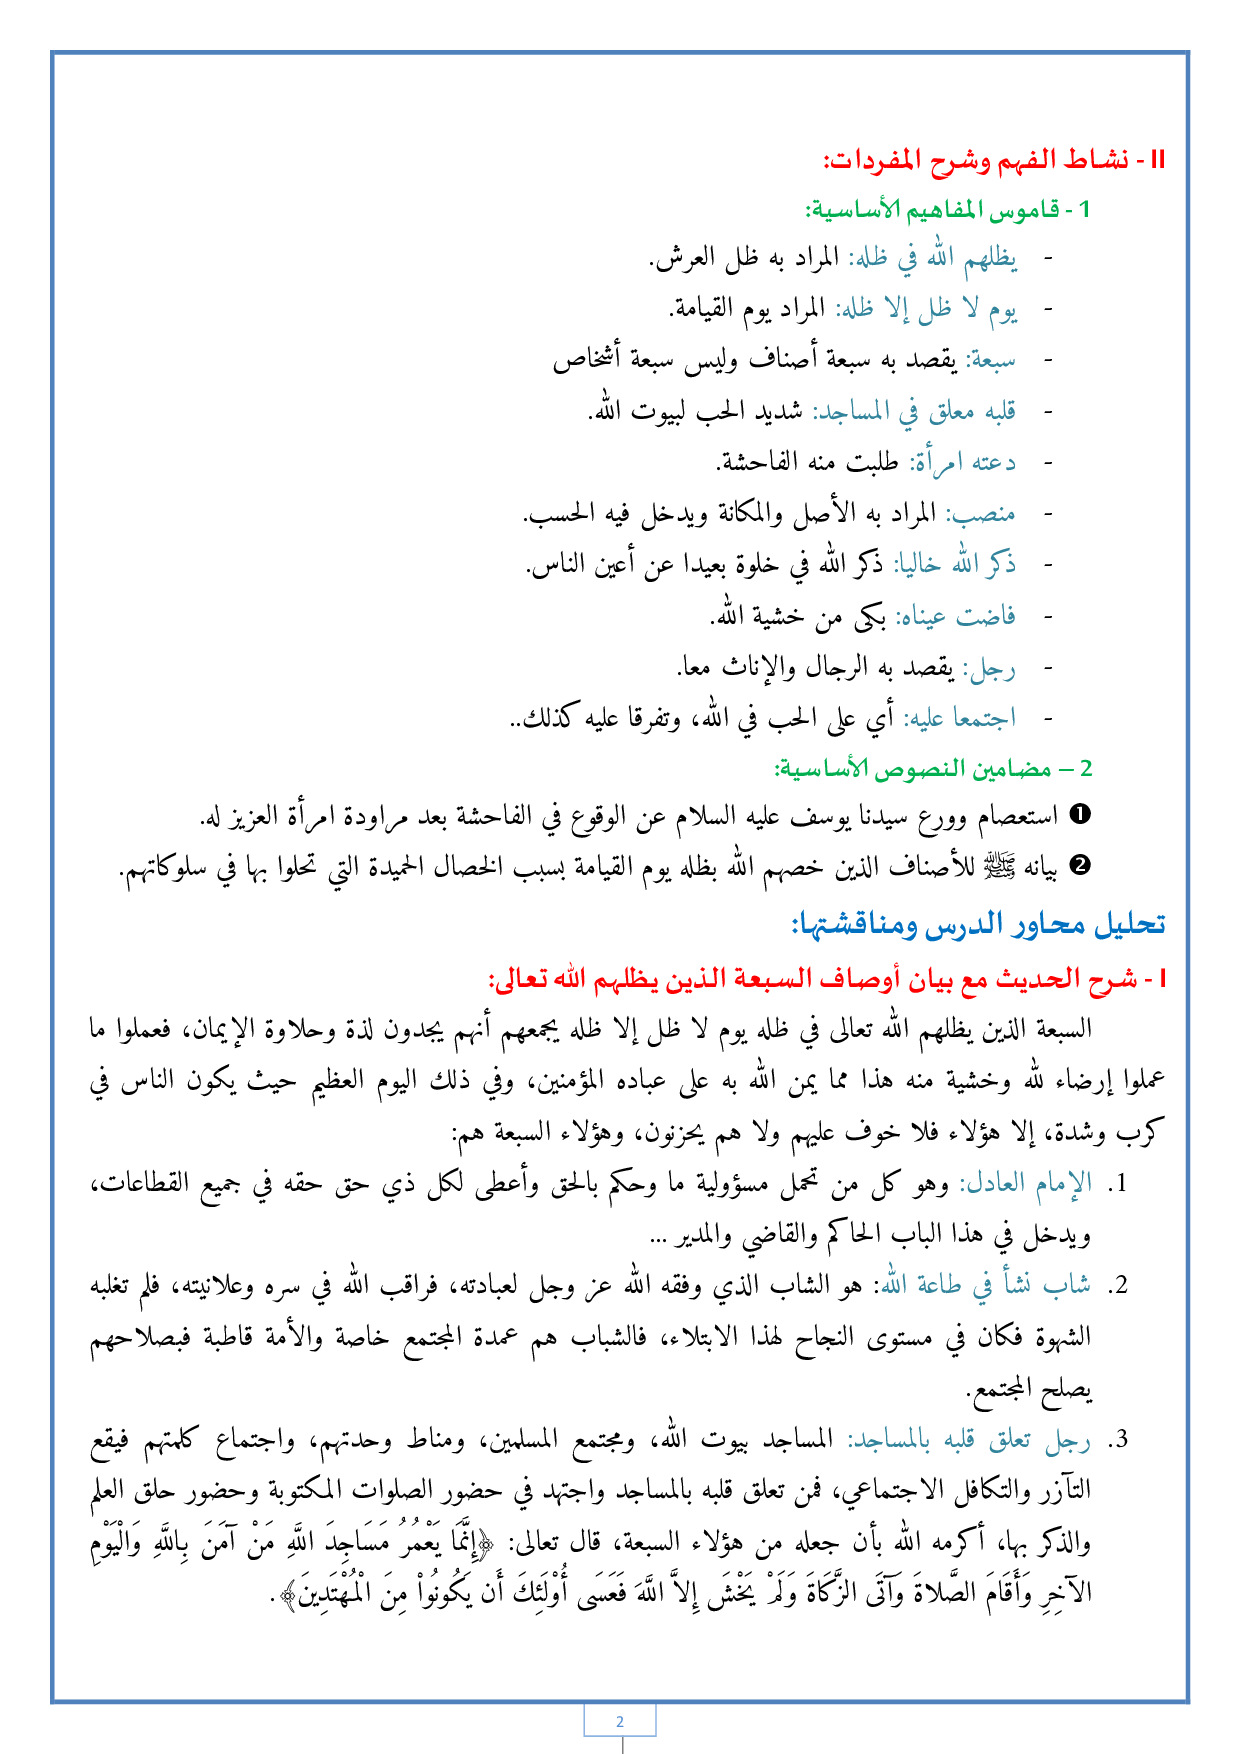 II - نشاط الفهم وشرح المفردات:
1 - قاموس المفاهيم الأساسية:
- يظلهم الله في ظله: المراد به ظل العرش.
- يوم لا ظل إلا ظله: المراد يوم القيامة.
- سبعة: يقصد به سبعة أصناف وليس سبعة أشخاص
- قلبه معلق في المساجد: شديد الحب لبيوت الله.
- دعته امرأة: طلبت منه الفاحشة.
- منصب: المراد به الأصل والمكانة ويدخل فيه الحسب.
- ذكر الله خاليا: ذكر الله في خلوة بعيدا عن أعين الناس.
- فاضت عيناه: بكى من خشية الله.
- رجل: يقصد به الرجال والإناث معا.
- اجتمعا عليه: أي على الحب في الله، وتفرقا عليه كذلك..
2 – مضامين النصوص الأساسية:
❶ استعصام وورع سيدنا يوسف عليه السلام عن الوقوع في الفاحشة بعد مراودة امرأة العزيز له.
❷ بيانه ﷺ للأصناف الذين خصهم الله بظله يوم القيامة بسبب الخصال الحميدة التي تحلوا بها في سلوكاتهم.
تحليل محاور الدرس ومناقشتها:
I - شرح الحديث مع بيان أوصاف السبعة الذين يظلهم الله تعالى:
السبعة الذين يظلهم الله تعالى في ظله يوم لا ظل إلا ظله يجمعهم أنهم يجدون لذة وحلاوة الإيمان، فعملوا ما
عملوا إرضاء لله وخشية منه هذا مما يمن الله به على عباده المؤمنين، وفي ذلك اليوم العظيم حيث يكون الناس في
كرب وشدة، إلا هؤلاء فلا خوف عليهم ولا هم يحزنون، وهؤلاء السبعة هم:
1. الإمام العادل: وهو كل من تحمل مسؤولية ما وحكم بالحق وأعطى لكل ذي حق حقه في جميع القطاعات،
ويدخل في هذا الباب الحاكم والقاضي والمدير ...
2. شاب نشأ في طاعة الله: هو الشاب الذي وفقه الله عز وجل لعبادته، فراقب الله في سره وعلانيته، فلم تغلبه
الشهوة فكان في مستوى النجاح لهذا الابتلاء، فالشباب هم عمدة المجتمع خاصة والأمة قاطبة فبصلاحهم
يصلح المجتمع.
3. رجل تعلق قلبه بالمساجد: المساجد بيوت الله، ومجتمع المسلمين، ومناط وحدتهم، واجتماع كلمتهم فيقع
التآزر والتكافل الاجتماعي، فمن تعلق قلبه بالمساجد واجتهد في حضور الصلوات المكتوبة وحضور حلق العلم
والذكر بها، أكرمه الله بأن جعله من هؤلاء السبعة، قال تعالى: ﴿إِنَّمَا يَعْمُرُ مَسَاجِدَ اللَّهِ مَنْ آمَنَ بِاللَّهِ وَالْيَوْمِ
الآخِرِ وَأَقَامَ الصَّلاةَ وَآتَى الزَّكَاةَ وَلَمْ يَخْشَ إِلاَّ اللَّهَ فَعَسَى أُوْلَئِكَ أَن يَكُونُواْ مِنَ الْمُهْتَدِينَ﴾.
2